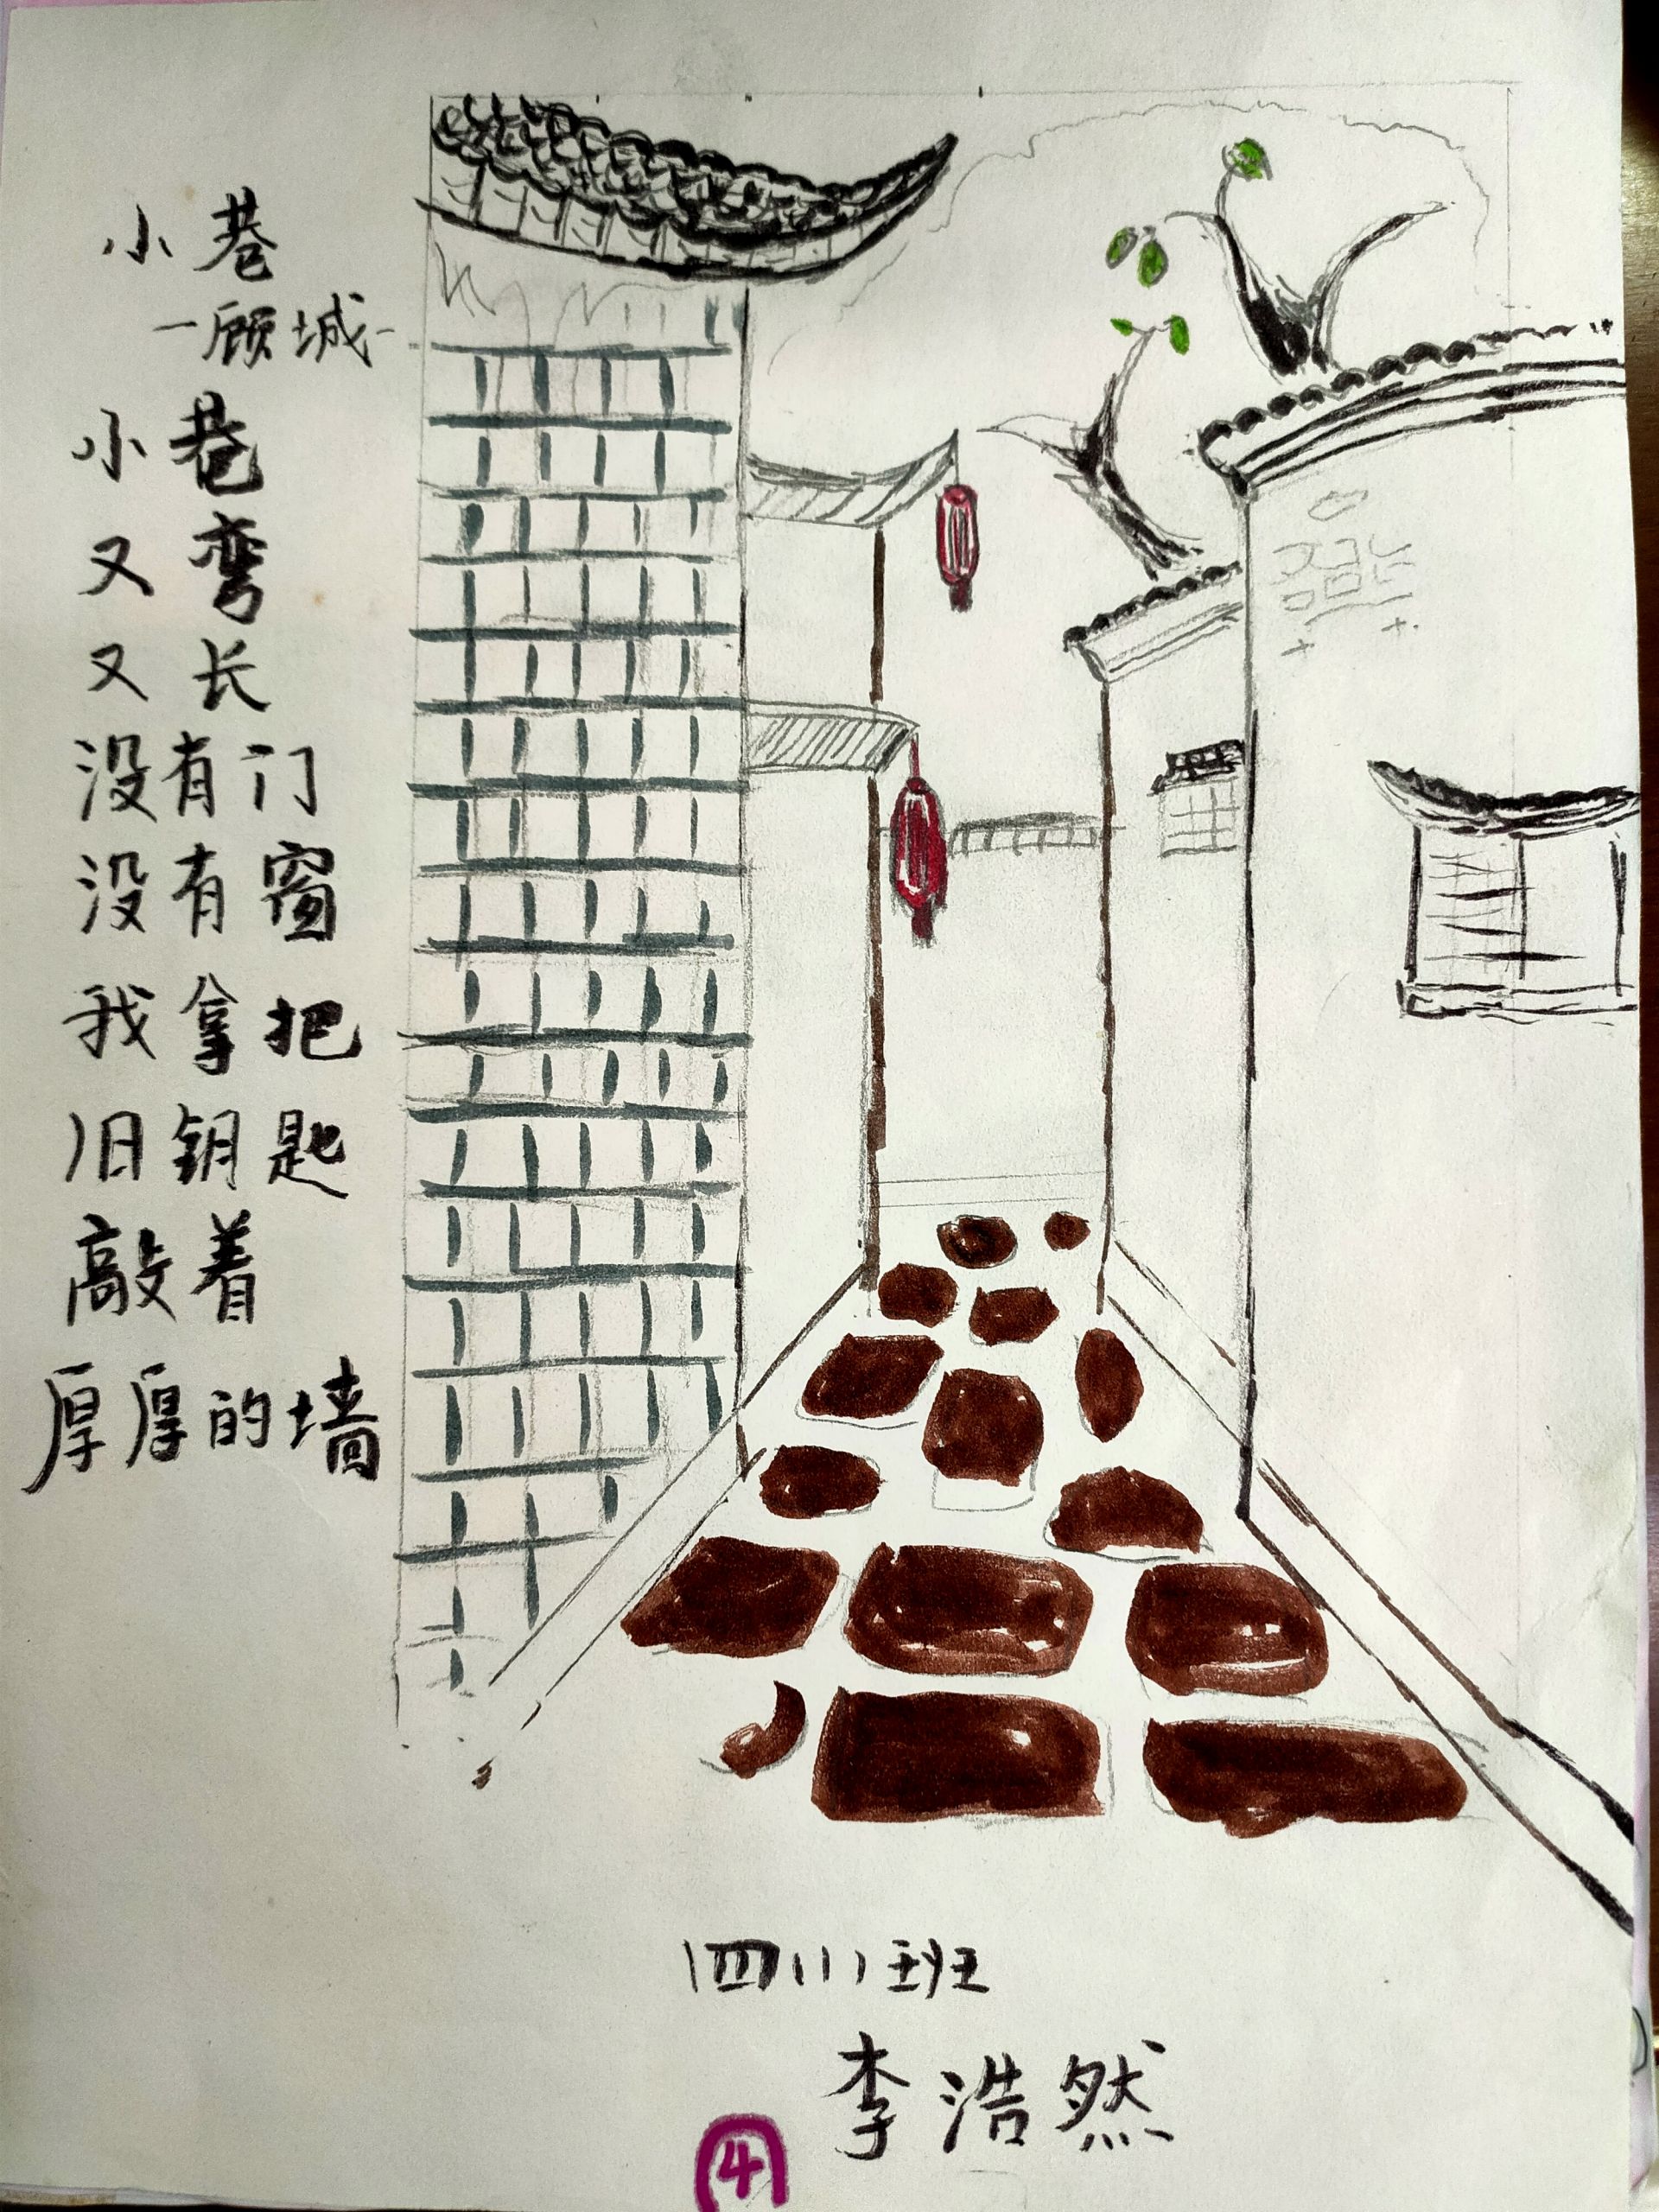 小巷
-顾城-
小巷
又弯
又长
没有门
没有窗
我拿把
旧钥匙
敲着
厚厚的墙
四(1)班
李浩然
4